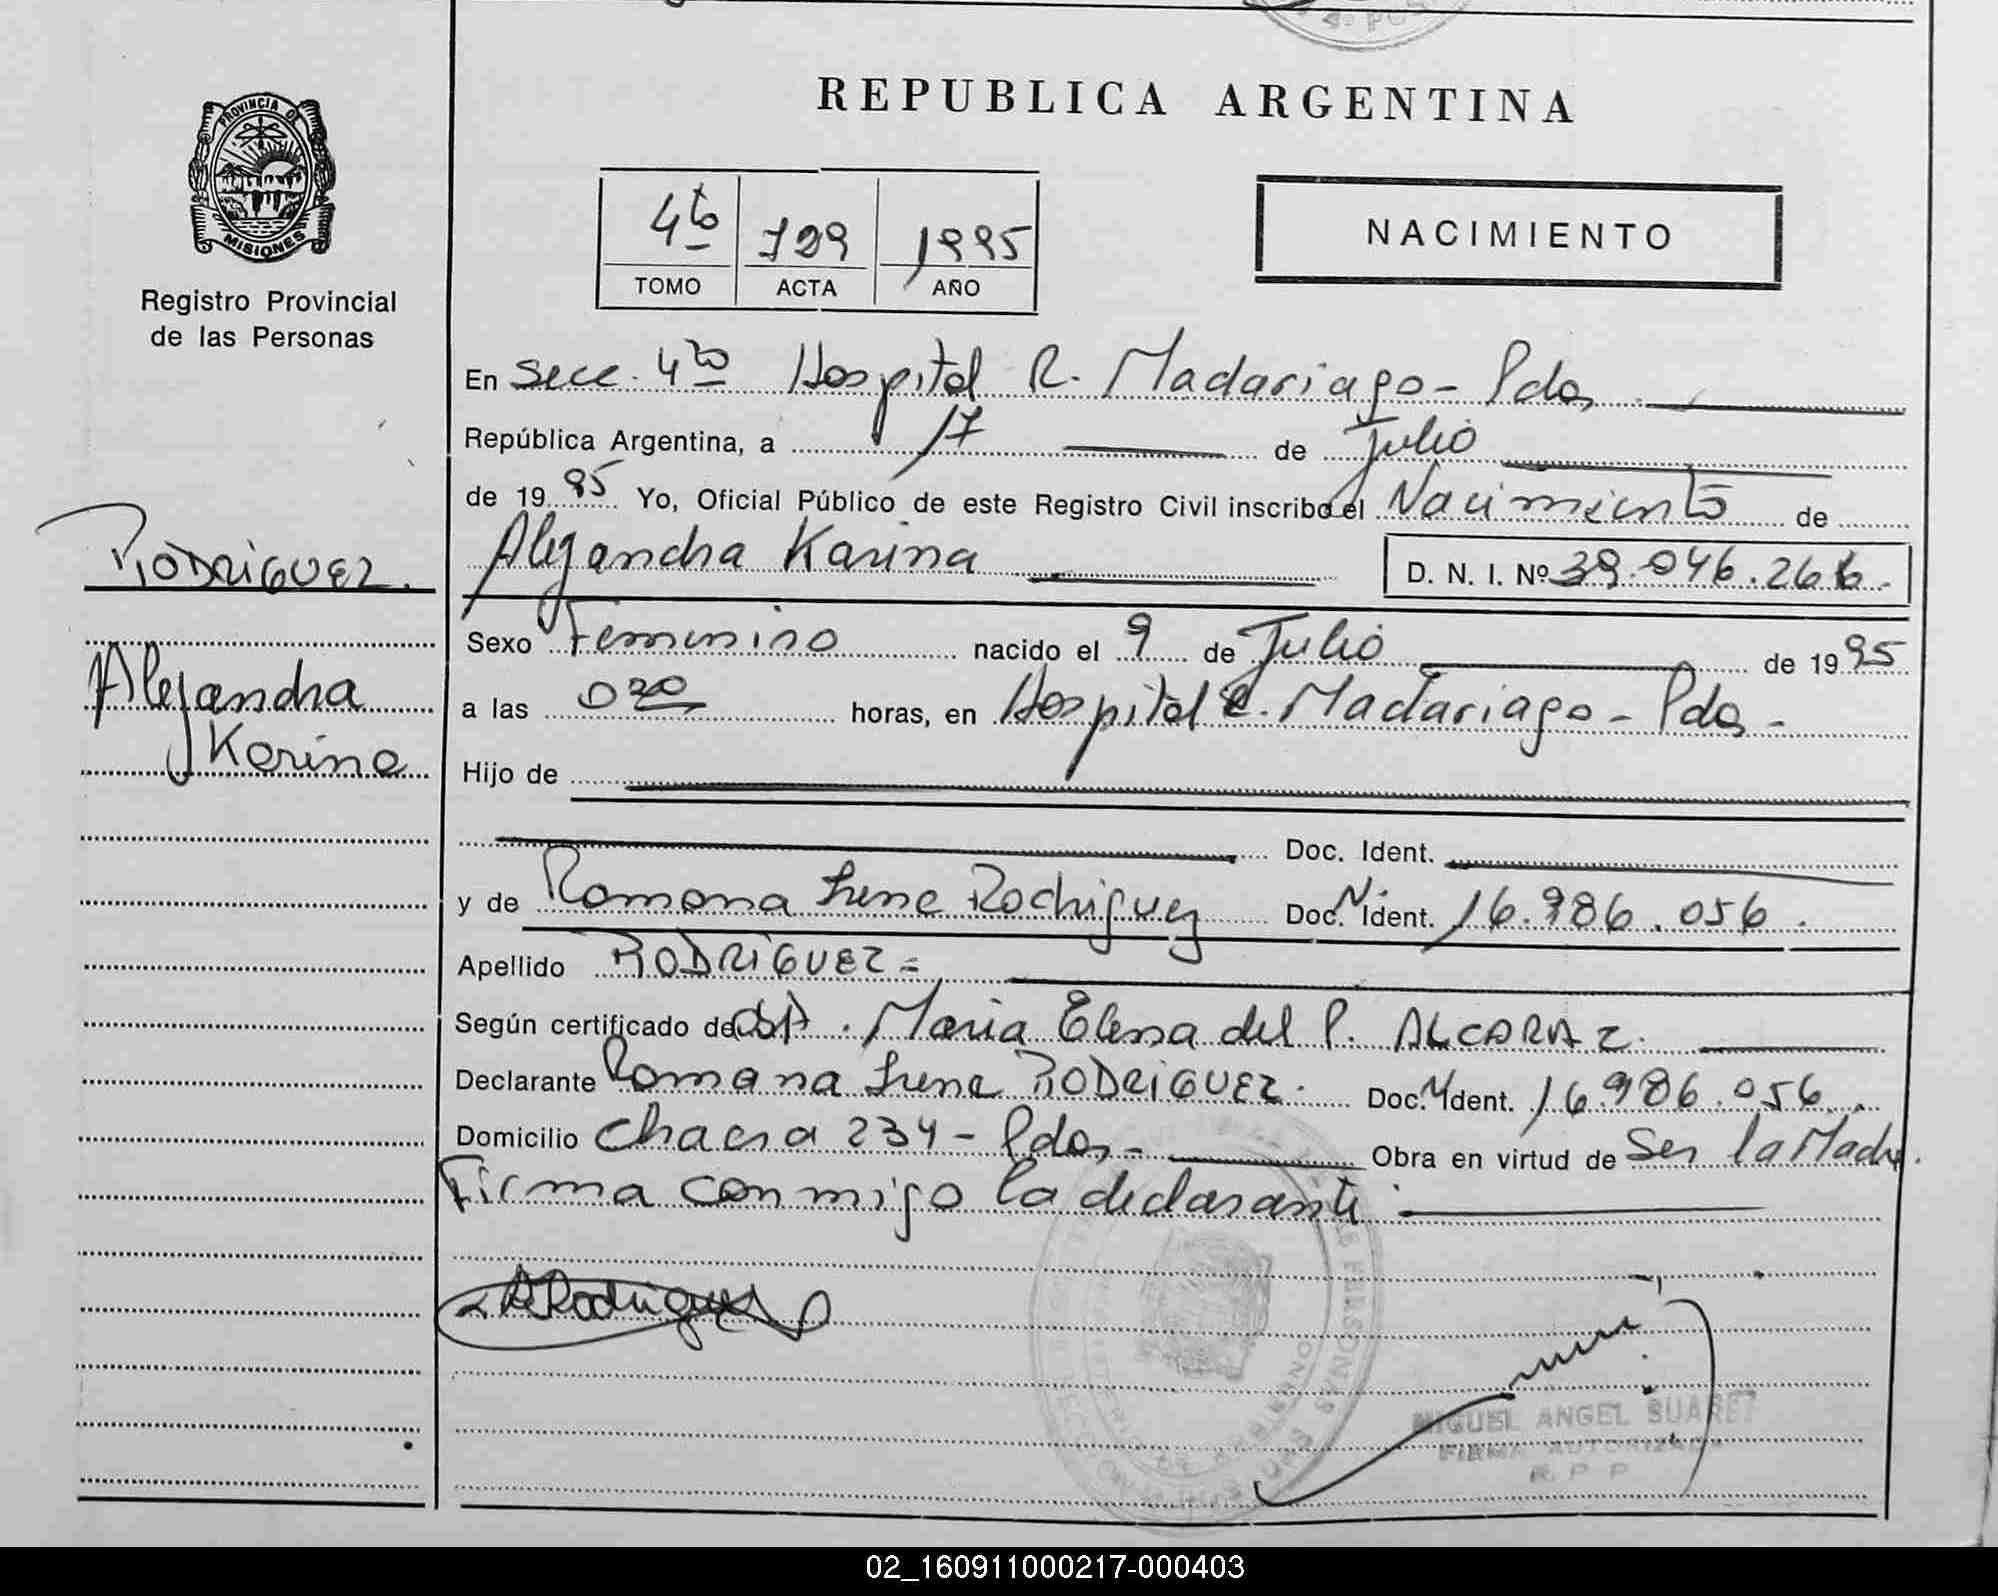 REPUBLICA ARGENTINA
PROVINCIA DE
MISIONES
Registro Provincial
de las Personas
4to 729 1995
TOMO ACTA AÑO
NACIMIENTO
En Secc. 4to Hospital R. Madariaga - Pdas
República Argentina, a 17 de Julio
de 1995 Yo, Oficial Público de este Registro Civil inscribo el Nacimiento de
Alejandra Karina D. N. I. Nº 39.046.266.
RODRIGUEZ.
Alejandra
Karina
Sexo Femenino nacido el 9 de Julio de 1995
a las 0 20 horas, en Hospital R. Madariaga - Pdas -
Hijo de
Doc. Ident.
y de Ramona Irene Rodriguez Doc. Ident. 16.986.056.
Apellido RODRIGUEZ =
Según certificado de María Elena del P. ALCARAZ.
Declarante Ramona Irene RODRIGUEZ. Doc. Ident. 16.986.056.
Domicilio Chacra 234 - Pdas - Obra en virtud de Ser la Madre.
Firma conmigo la declarante
Rodriguez
MIGUEL ANGEL SUAREZ
FIRMA AUTORIZADA
R. P. P.
02_160911000217-000403